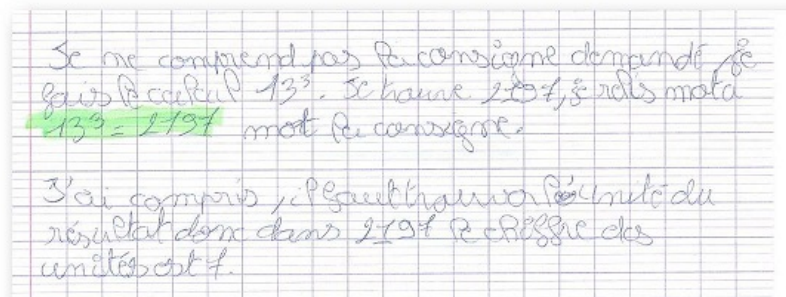 Je ne comprend pas la consigne demandé je
fais le calcul 13³. Je trouve 2197, je relis mot a
13³ = 2197 mot la consigne.
J'ai compris, il faut trouver l'unité du
résultat donc dans 2197 le chiffre des
unités est 7.